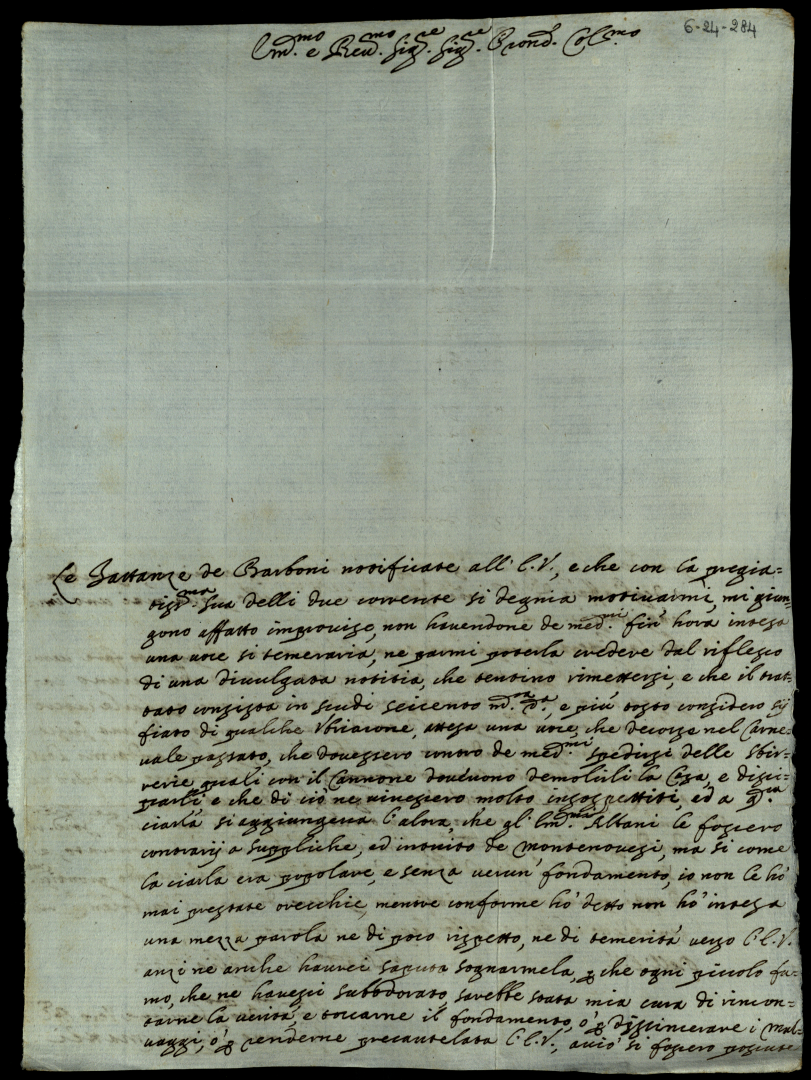 6-24-284
Ill.mo e Rev.mo Sig.re Sig.re Pron. Col.mo
Le Iattanze de Barboni notificate all' V.S., e che con la pregia=
tiss.ma sua delli due corrente si degnia motivarmi, mi giun=
gono affatto improvise, non havendone de med.mi fin' hora intesa
una voce si temeraria, ne parmi poterla credere dal riflesso
di una divulgata notitia, che tentino rimettersi, e che il trat=
tato consista in scudi seicento e più tosto considero sij
fiato di qualche Vbriacone, attesa una voce, che decorse nel Carne=
vale passato, che dovessero contro de med.mi spedirsi delle sbir=
rerie quali con il Cannone dovevono demolirli la Casa, e dissi=
parli, e che di ciò ne vivessero molto insospettiti, ed a q.sta
ciarla si aggiungeva l'altra, che gl' Ill.mi Albani le fossero
contrarij a suppliche, ed intuito de Montenovesi, ma si come
la ciarla era popolare, e senza verun' fondamento, io non le hò
mai prestate orecchie, mentre conforme hò detto non hò intesa
una mezza parola ne di poco rispetto, ne di temerità verso
anzi ne anche haurei saputa sognarmela, p che ogni piccolo fu=
mo, che ne havessi subbodorato, sarebbe stata mia cura di rincon=
trarne la verità, e toccarne il fondamento, ò p dissincerare i mal=
vaggi, ò p renderne precautelata acciò si fossero